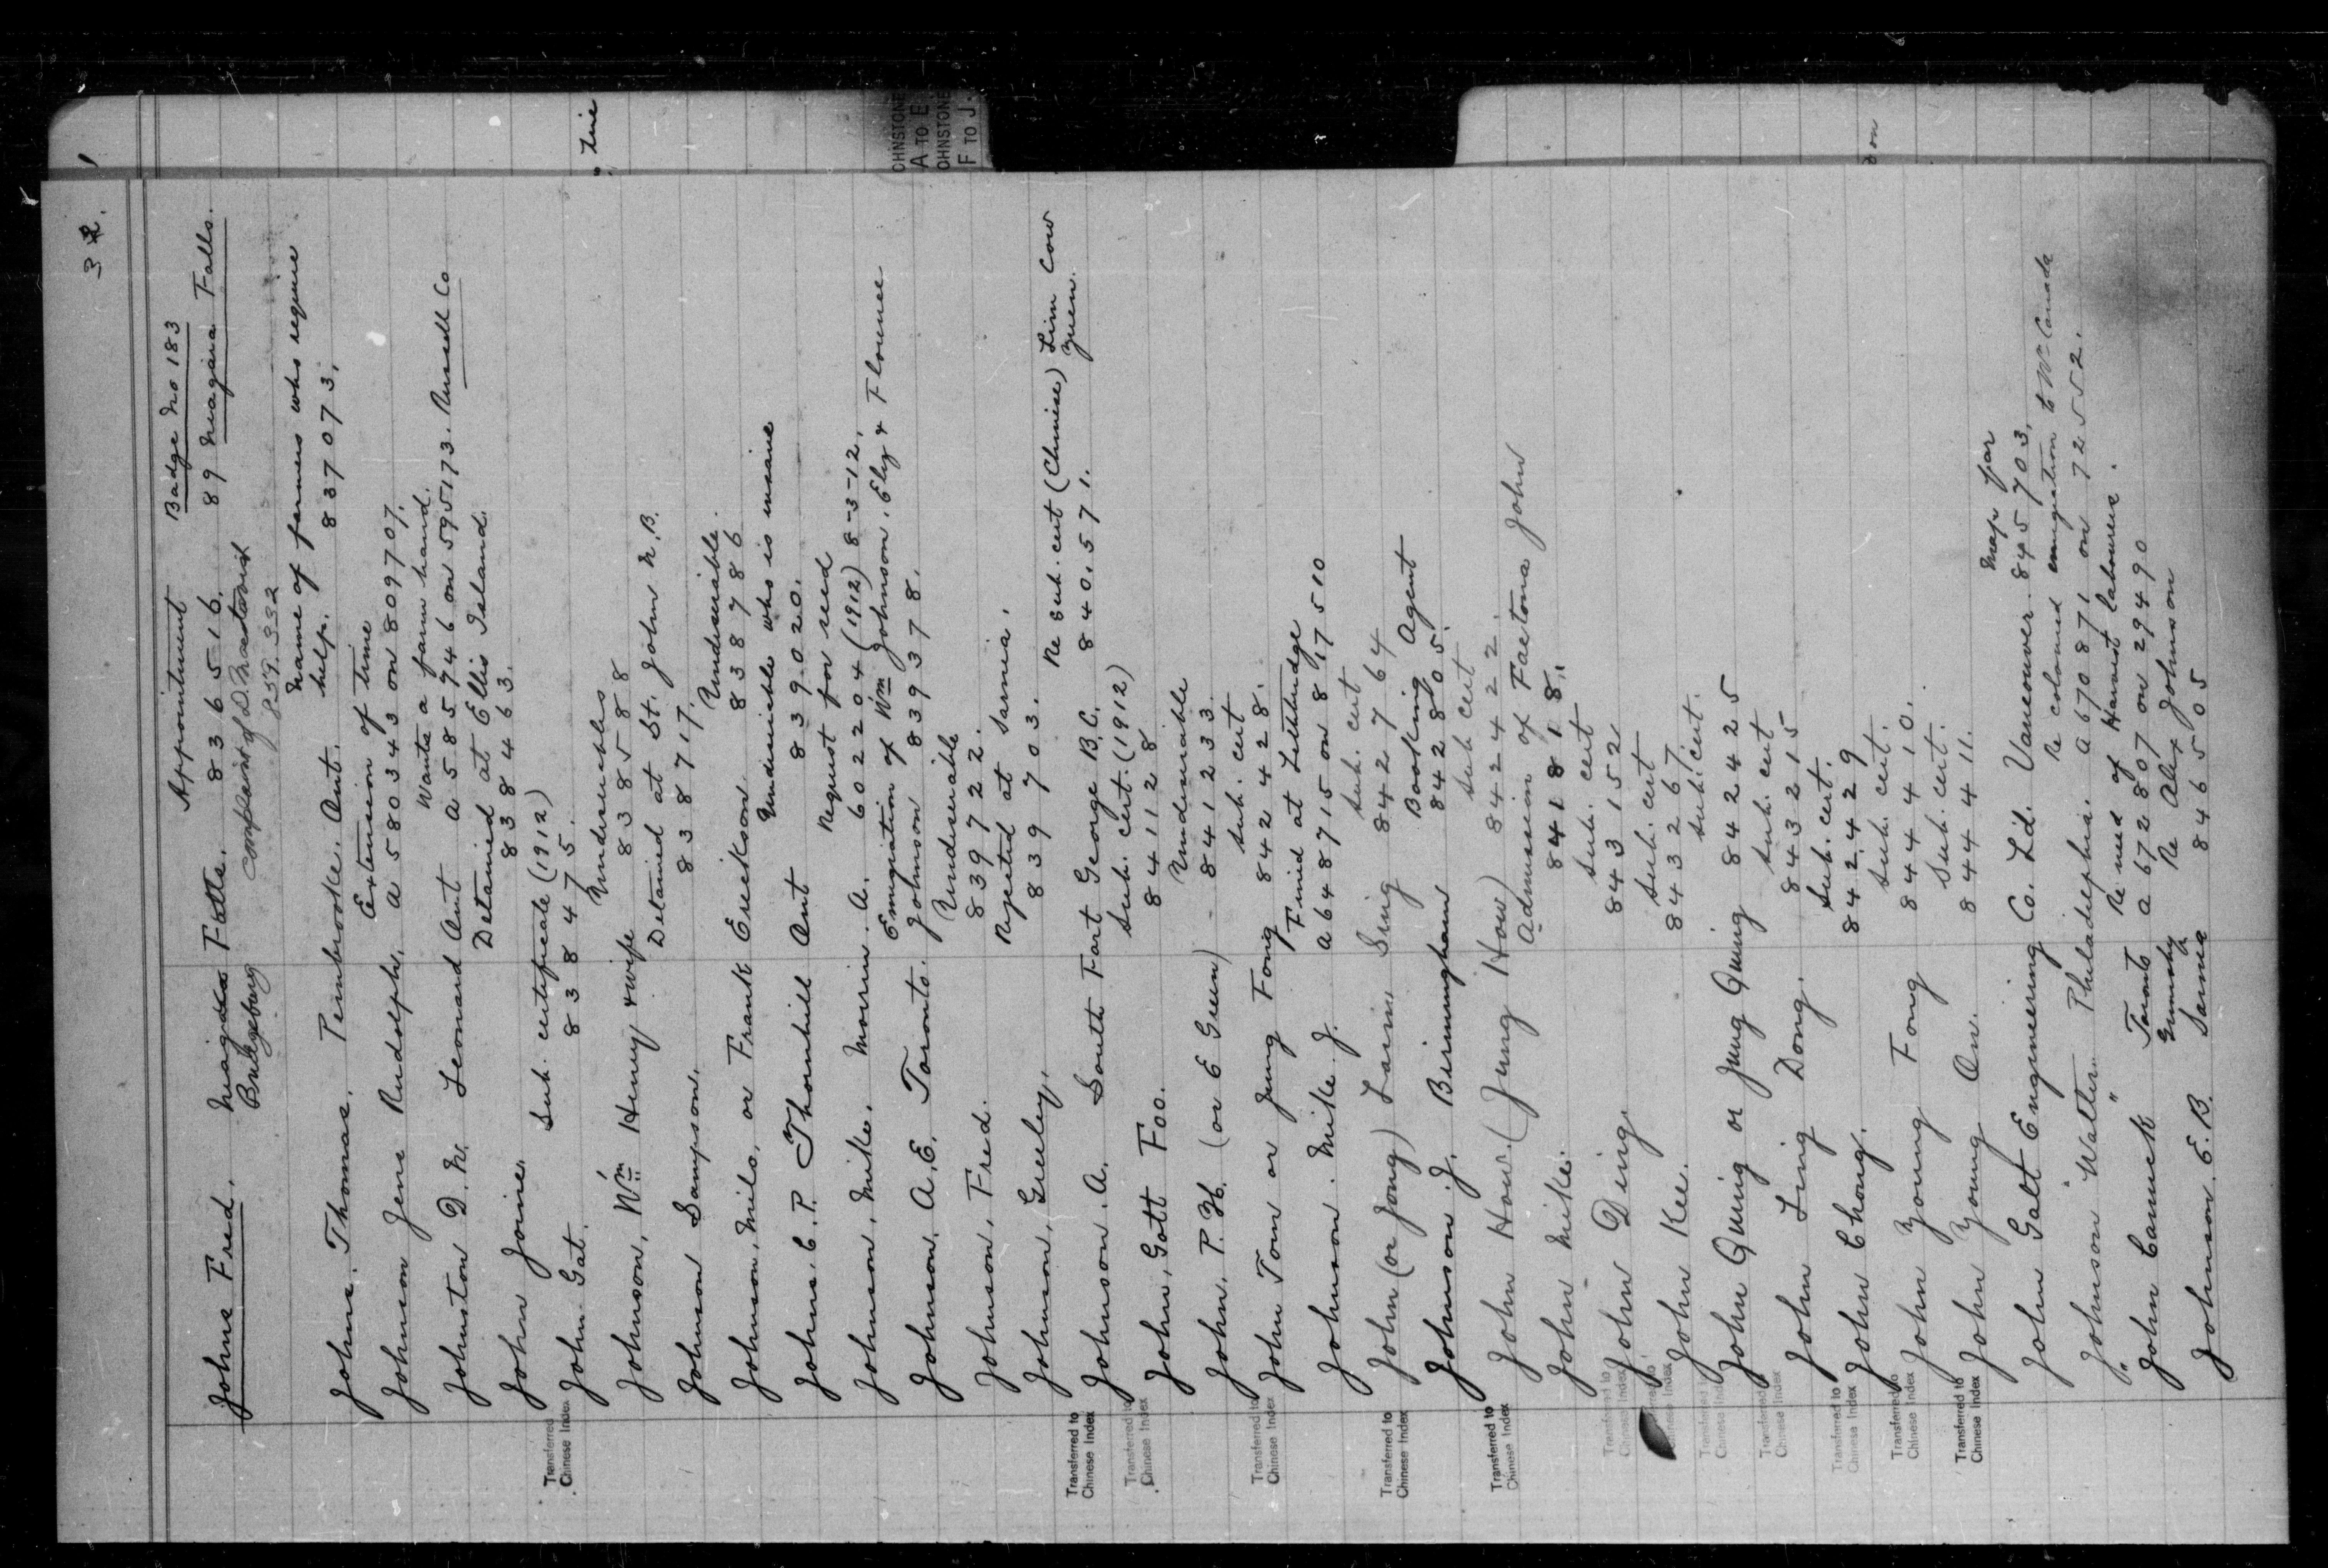 32.
Appointment Badge No 183
Johns Fred. Niagara Falls. 836516. 89 Niagara Falls.
Bridgeburg complaint of D.
859.332
Name of farmers who require
Johns. Thomas. Pembrooke. Ont. help. 837073.
Extension of time
Johnson Jens Rudolph. A580343 on 809707.
Wants a farm hand.
Johnston D. N. Leonard Ont A585746 on 595173. Russell Co
Detained at Ellis Island.
John Joine. 838463.
Sub. certificate (1912)
John Gat. 838475.
Undesirables
Johnson, Wm Henry & wife 838588
Detained at St. John N.B.
Johnson Sampson. 838717.
Undesirable.
Johnson, Milo, or Frank Erickson. 838786
Undesirable who is insane
Johns. C. P. Thornhill Ont 839020.
Request for seed
Johnson, Mike. Morrin. A. 602204 (1912) 8-3-12.
Emigration of Wm Johnson, Eliz & Florence
Johnson, A. E. Toronto. Johnson 839378.
Undesirable
Johnson, Fred. 839722.
Rejected at Sarnia.
Johnson, Greeley. 839703.
Re sub. cert (Chinese) Lim Cow
Yuen.
Johnson. A. South Fort George B.C. 840.571.
Sub. cert. (1912)
John, Gott Foo. 841128
Undesirable
John, P. H. (or E Green) 841233.
Sub. cert
John Tom or Jung Fong 842428.
Fined at Lethbridge
Johnson. Mike J. A648715 on 817510
Sub. cert
John (or Jong) Larim Sing 842764
Booking Agent
Johnson. J. Birmingham 842805.
Sub cert
John How. (Jung How) 842422.
Admission of Faetoma John
John Mike. 841818.
Sub. cert
John Ding. 843152
Sub. cert
John Kee. 843267.
Sub. cert.
John Quing or Jung Quing 842425
Sub. cert
John Ling Dong. 843215
Sub. cert.
John Chong. 842.429
Sub. cert.
John Young Fong 844410.
Sub. cert.
John Young On. 844411.
Map for
John Galt Engineering Co. Ld. Vancouver. 845703.
Re coloured emigration to Wn Canada
Johnson "Walter" Philadelphia. A670871 on 72552.
Re need of Harvest labourers.
" John Canuck Toronto A672807 on 29490
Re Alex Johnson
Johnson. E. B. Sarnia 846505
Transferred to
Chinese Index
Transferred to
Chinese Index
Transferred to
Chinese Index
Transferred to
Chinese Index
Transferred to
Chinese Index
Transferred to
Chinese Index
Transferred to
Chinese Index
Transferred to
Chinese Index
Transferred to
Chinese Index
Transferred to
Chinese Index
Transferred to
Chinese Index
Transferred to
Chinese Index
Transferred to
Chinese Index
OHNSTONE
A TO E
OHNSTONE
F TO J.